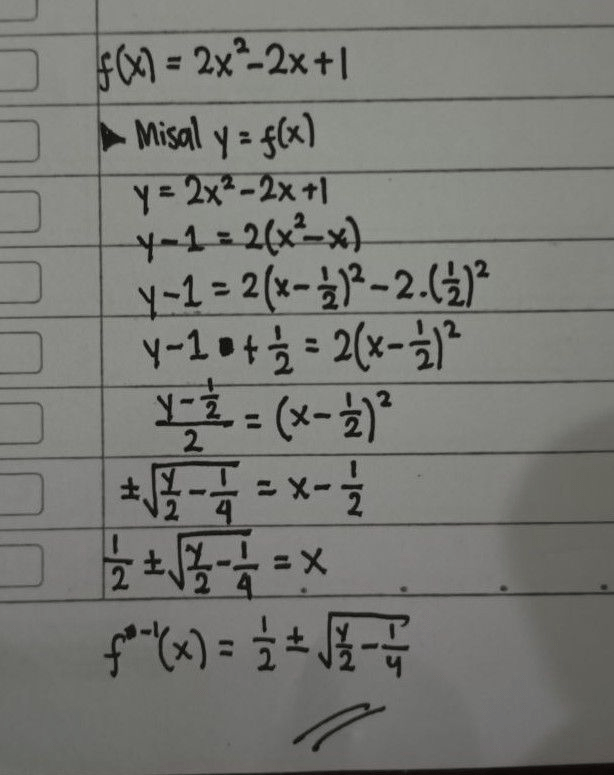 f(x) = 2x² - 2x + 1
▶ Misal y = f(x)
y = 2x² - 2x + 1
y - 1 = 2(x² - x)
y - 1 = 2(x - 1/2)² - 2.(1/2)²
y - 1 + 1/2 = 2(x - 1/2)²
(y - 1/2)/2 = (x - 1/2)²
±√(y/2 - 1/4) = x - 1/2
1/2 ± √(y/2 - 1/4) = x
f⁻¹(x) = 1/2 ± √(y/2 - 1/4)